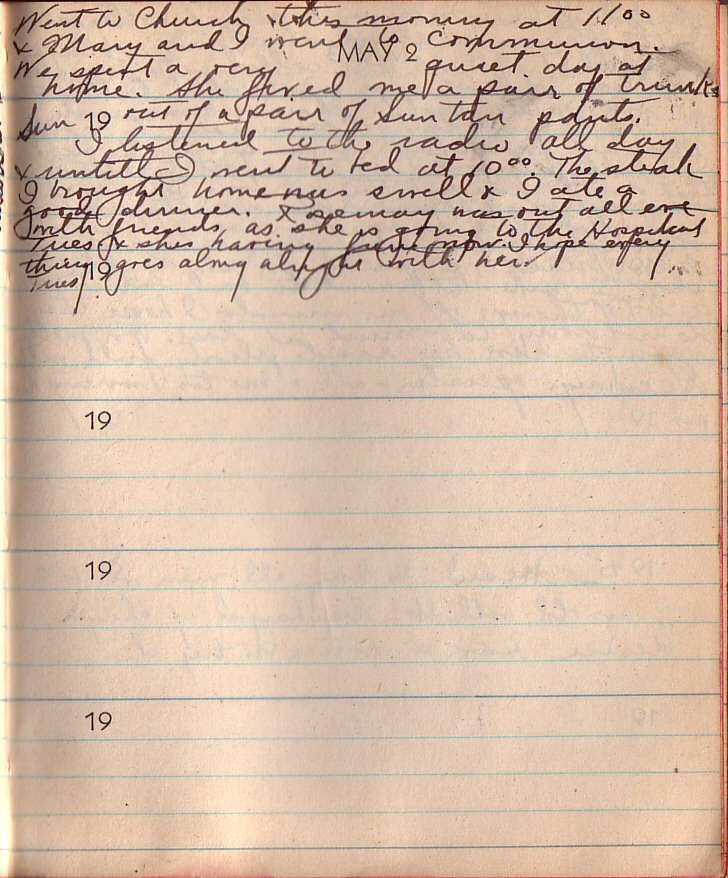 Went to Church this morning at 11:00
x Mary and I went to communion.
MAY 2
We spent a very quiet day at
home. She fixed me a pair of trunks
Sun 19 out of a pair of Sun tan pants.
I listened to the radio all day
x untill I went to bed at 10:00. The steak
I brought home was swell x I ate a
good dinner. Rosemary was out all eve
with friends, as she is going to the Hospital
Tues x shes having fun now. I hope every
thing goes along alright with her
19
Tues
19
19
19